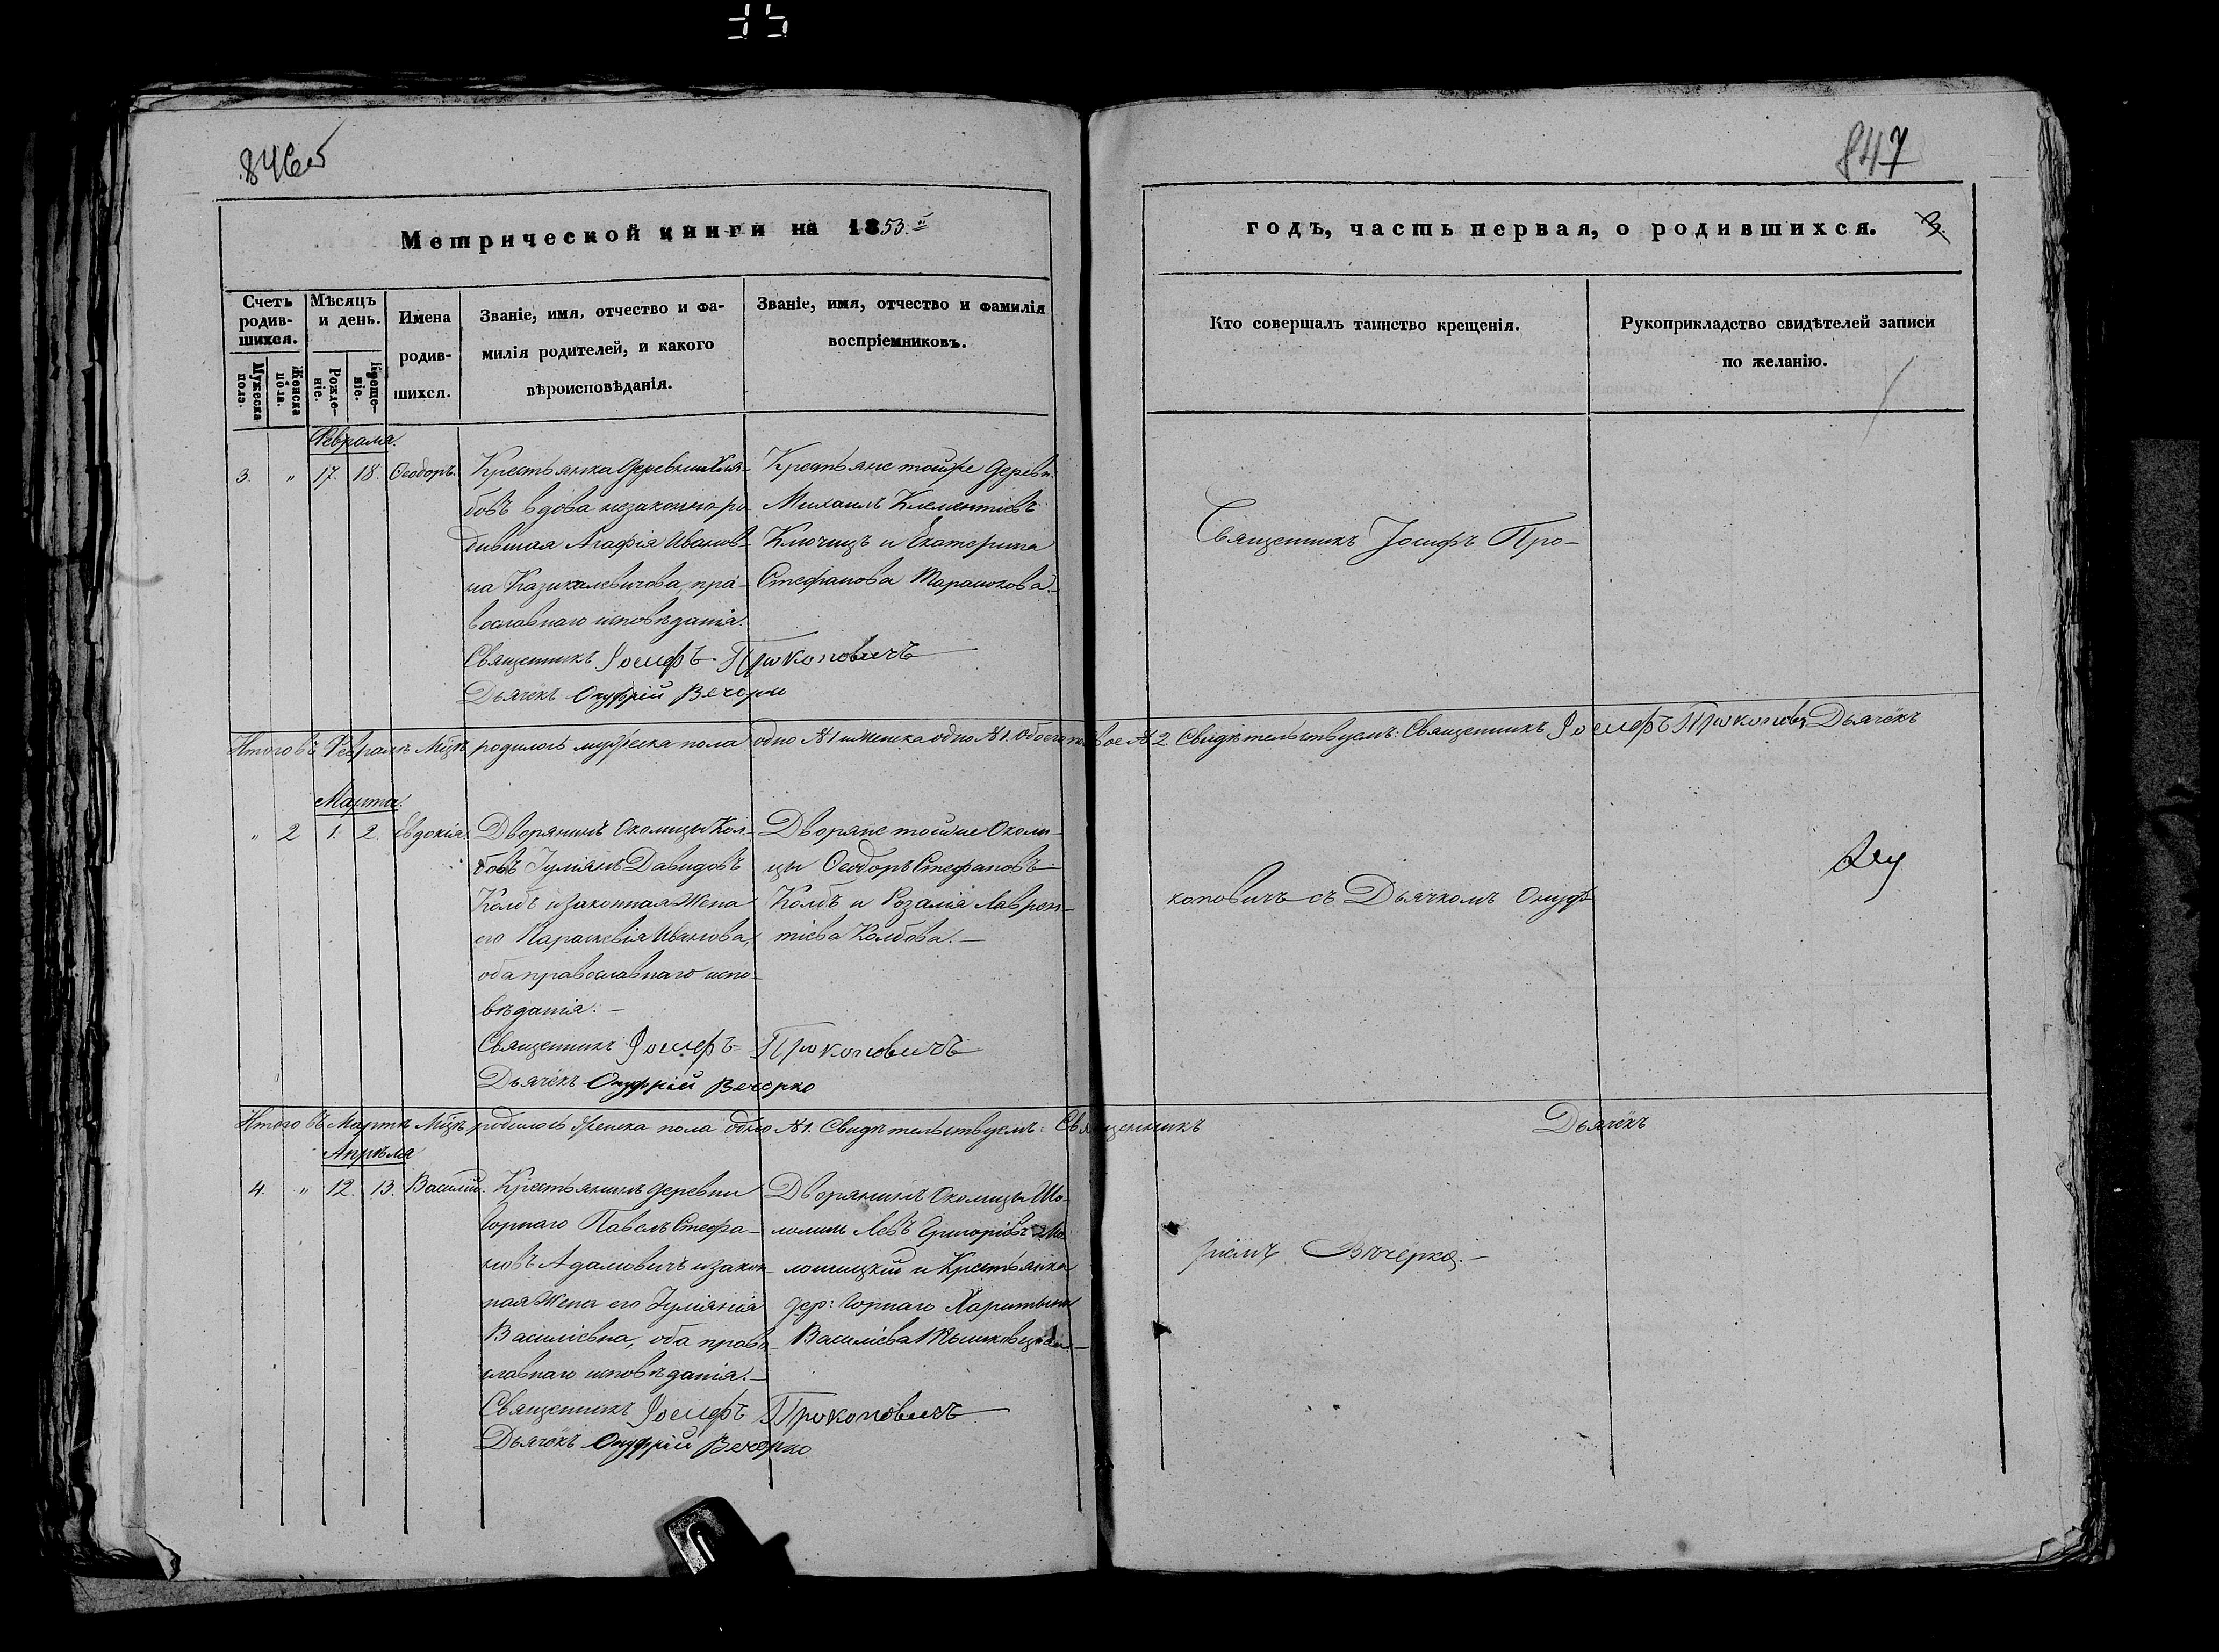 35
846об
847
Метрической книги на 1853й
годъ, часть первая, о родившихся. 3.
Счетъ родив-шихся.
Мужеска пола.
Женска пола.
Мѣсяцъ и день.
Рожде-ніе.
Креще-ніе.
Имена родив-шихся.
Званіе, имя, отчество и фа-
милія родителей, и какого
вѣроисповѣданія.
Званіе, имя, отчество и фамилія
воспріемниковъ.
Кто совершалъ таинство крещенія.
Рукоприкладство свидѣтелей записи
по желанію.
Февраля.
3. " 17. 18. Ѳеодоръ.
Крестьянка деревни
бовъ вдова незаконно ро
дившая Агафія Иванов-
на Казикалевичова, пра-
вославнаго исповѣданія.
Священникъ Іосифъ Прокоповичъ
Дьячекъ Онуфрій Вечорко
Крестьяне тойже деревн.
Михаилъ Клементіевъ
Ключицъ и Екатерина
Стефанова Тарасюкова.
Священникъ Іосифъ Про-
Итого въ Февралѣ Мцѣ родилось мужеска пола одно №1 и женска одно №1. Обоего двое №2. Свидѣтельствуемъ: Священникъ Іосифъ Прокоповъ Дьячекъ
Марта.
" 2 1. 2. Евдокія.
Дворянинъ Околицы Кол-
бовъ Іуліянъ Давидовъ
Колбъ и законная Жена
его Параскевія Иванова,
оба православнаго испо-
вѣданія.
Священникъ Іосифъ Прокоповичъ
Дьячекъ Онуфрій Вечорко
Дворяне тойже Околи-
цы Ѳеодоръ Стефановъ
Колбъ и Розалія Лаврен-
тіева Колбова.
коповичъ съ Дьячкомъ Онуф
Итого въ Мартѣ Мцѣ родилось Женска пола одно №1. Свидѣтельствуемъ: Священникъ Дьячекъ
Апрѣля
4. " 12. 13. Василій.
Крестьянинъ деревни
Горнаго Павелъ Стефа-
новъ Адамовичъ и закон-
ная Жена его Іуліянія
Василіевна, оба право-
славнаго исповѣданія.
Священникъ Іосифъ Прокоповичъ
Дьячекъ Онуфрій Вечорко
Дворянинъ Околицы
Левъ Григоріевъ
и Крестьянка
дер: Горнаго
Василіева
ріемъ Вечерко.